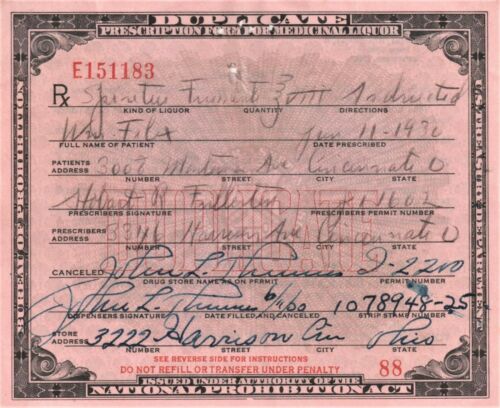 DUPLICATE
PRESCRIPTION FORM FOR MEDICINAL LIQUOR
E151183
Rx Spiritus Frumenti
KIND OF LIQUOR QUANTITY DIRECTIONS
Wm Jan 11-1930
FULL NAME OF PATIENT DATE PRESCRIBED
Ave Cincinnati O
PATIENTS ADDRESS NUMBER STREET CITY STATE
Hobart
PRESCRIBERS SIGNATURE PRESCRIBERS PERMIT NUMBER
Harrison Ave Cincinnati O
PRESCRIBERS ADDRESS NUMBER STREET CITY STATE
DUPLICATE
CANCELED John L.
DRUG STORE NAME AS ON PERMIT PERMIT NUMBER
John L. 1078948-25
DISPENSERS SIGNATURE DATE FILLED AND CANCELED STRIP STAMP NUMBER
3222 Harrison Ohio
STORE ADDRESS NUMBER STREET CITY STATE
SEE REVERSE SIDE FOR INSTRUCTIONS
DO NOT REFILL OR TRANSFER UNDER PENALTY
88
ISSUED UNDER AUTHORITY OF THE
NATIONAL PROHIBITION ACT
BUREAU OF PROHIBITION
U.S. TREASURY DEPARTMENT